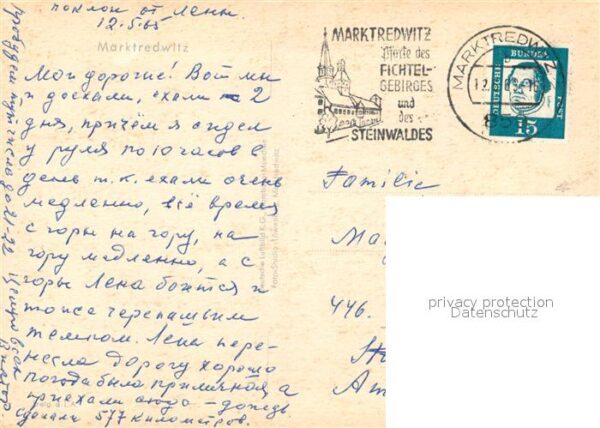 поклон от Лены
12.5.65
Marktredwitz
Мои дорогие! Вот мы
и доехали, ехали 2
дня, причём я сидел
у руля по 10 часов в
день т.к. ехали очень
медленно, всё время
с горы на гору, на
гору медленно, а с
горы Лена боится и
тоже черепашьим
темпом. Лена пере-
несла дорогу хорошо
Погода была приличная, а
приехали сюда – дождь
сделали 577 километров.
числа до 21-22 Целую всех
Виктор.
MARKTREDWITZ
Pforte des
FICHTEL-
GEBIRGES
und
des
STEINWALDES
MARKTREDWITZ
12.
DEUTSCHE BUNDESPOST
15
Familie
Ma
446.
St
Am
privacy protection
Datenschutz